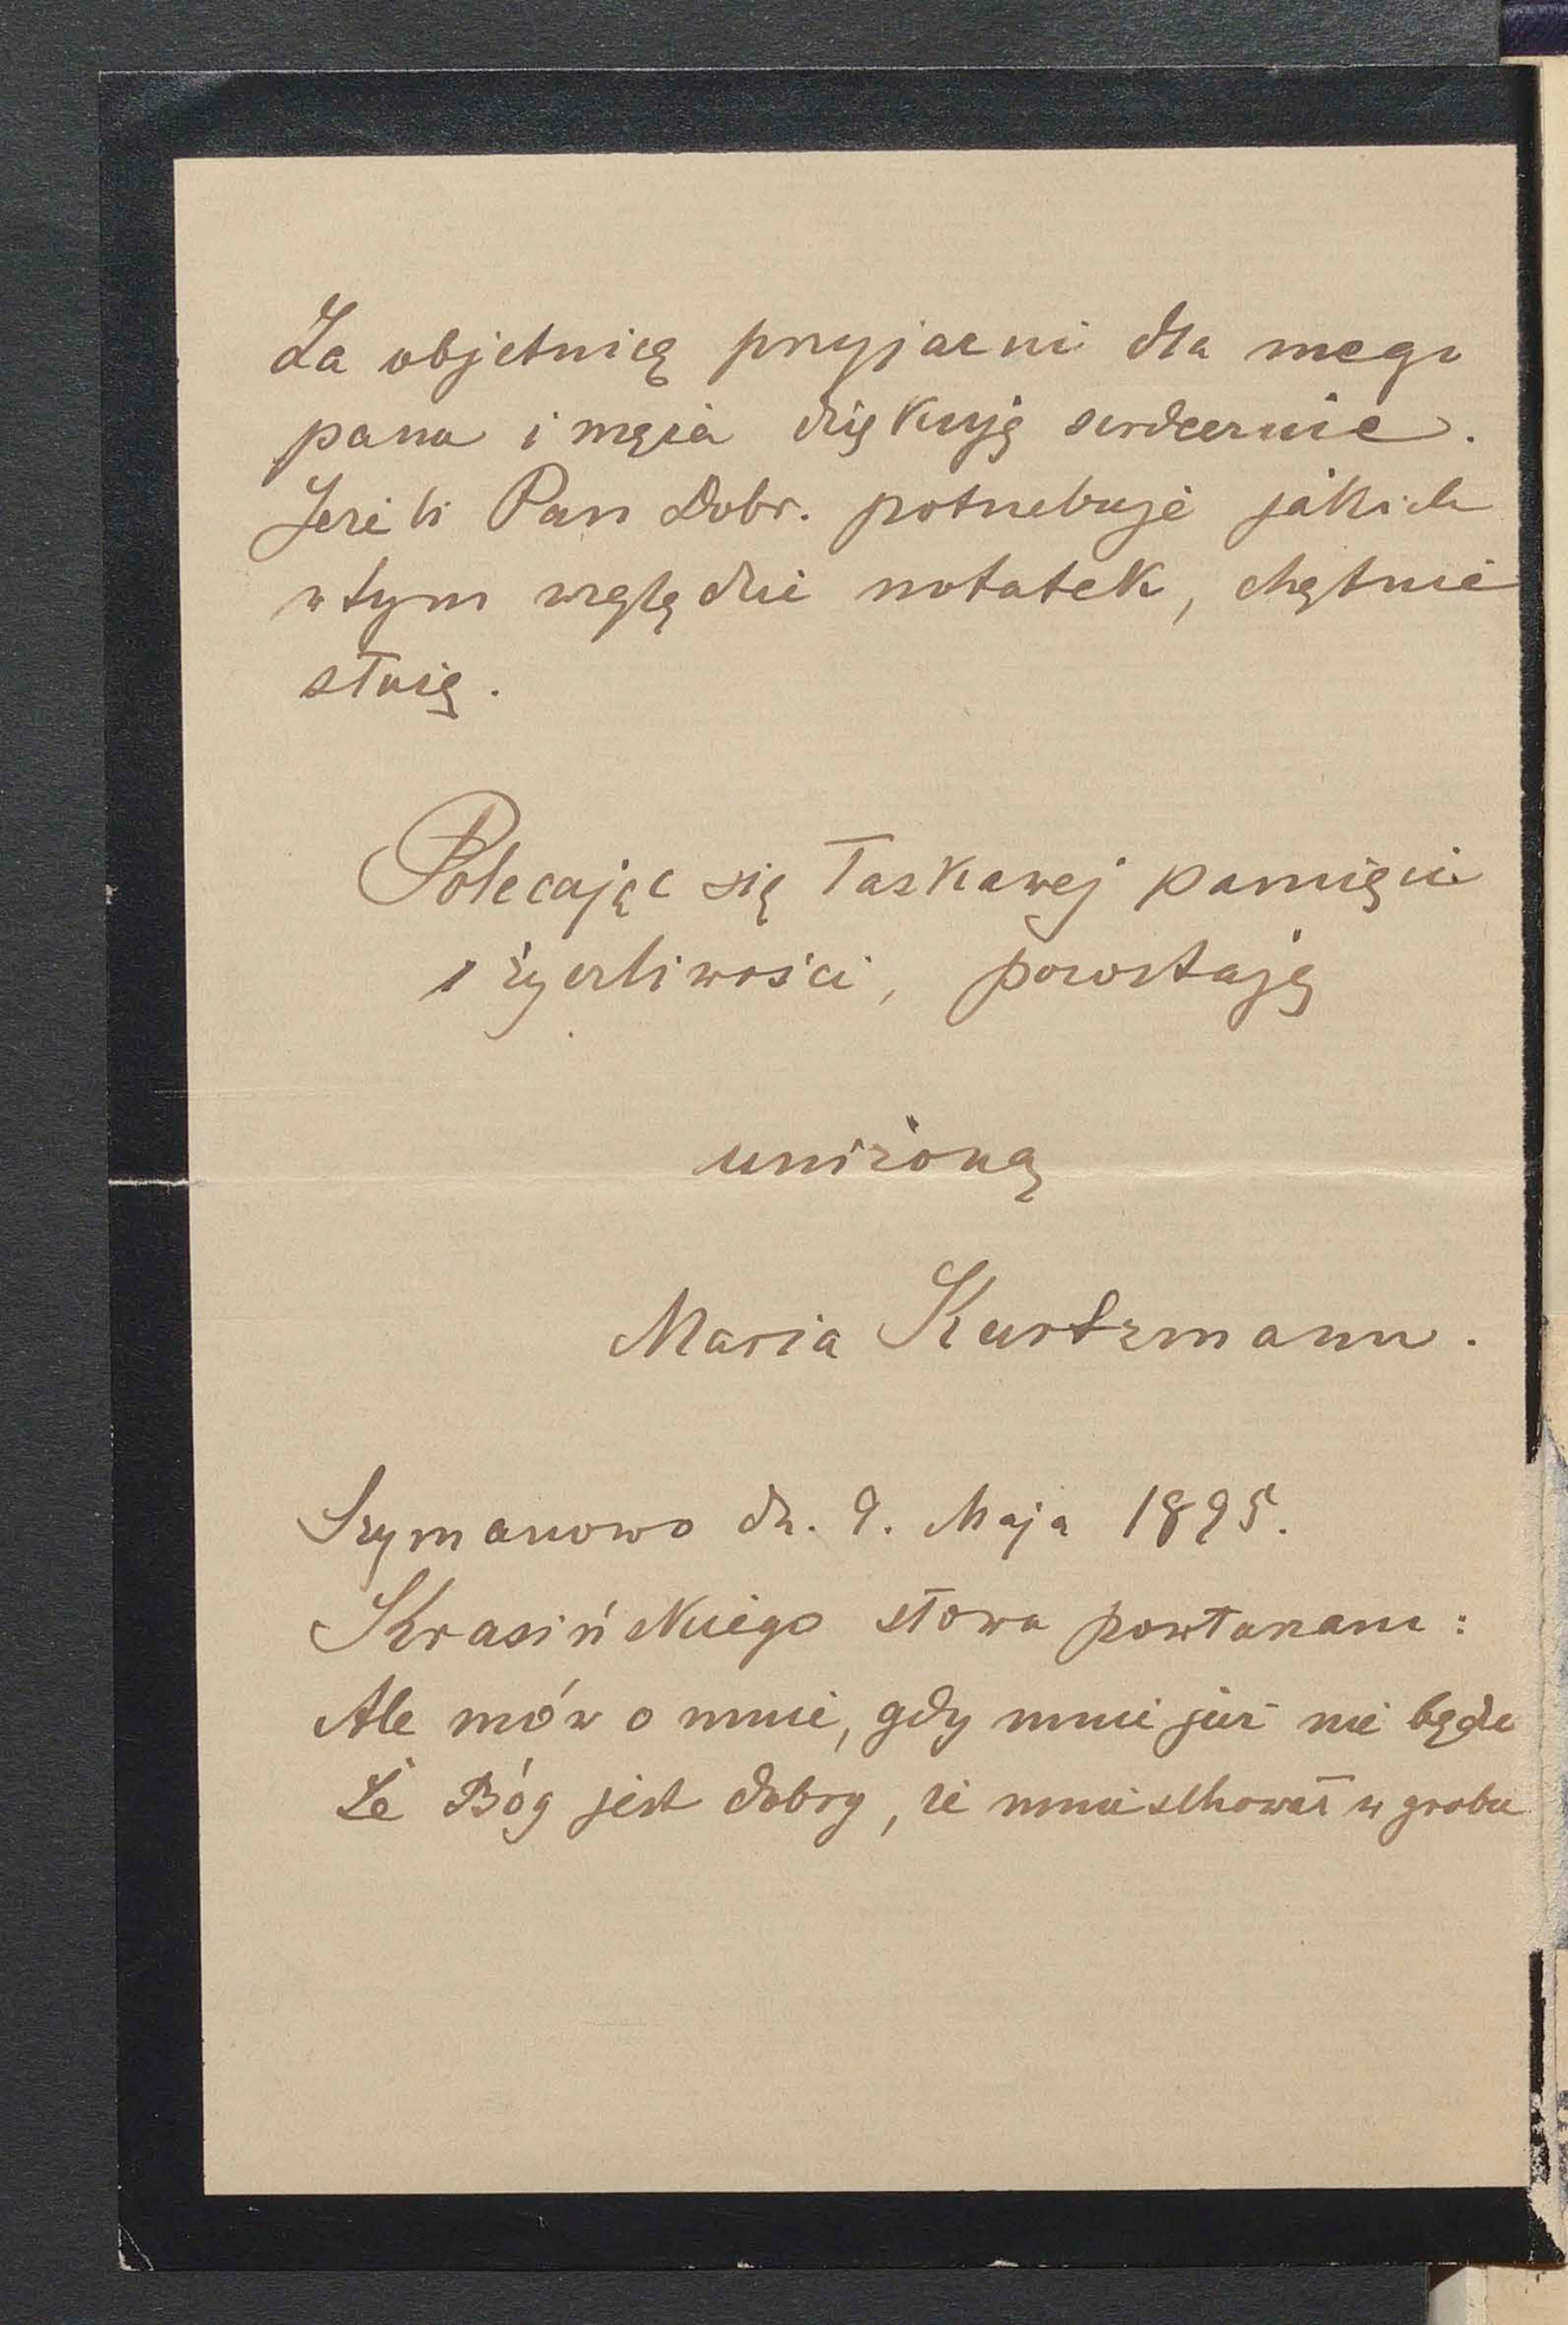 Za objetnicą przyjaźni dla mego
pana i męża dziękuję serdecznie.
Jeżeli Pan Dobr. potrzebuje jakich
w tym względzie notatek, chętnie
służę.
Polecając się łaskawej pamięci
i życzliwości, pozostaję
uniżoną
Maria Kurtzmann.
Szymanowo dn. 9. Maja 1895.
Krasińskiego słowa powtarzam:
Ale mów o mnie, gdy mnie już nie będzie
Że Bóg jest dobry, że mnie schował w grobie